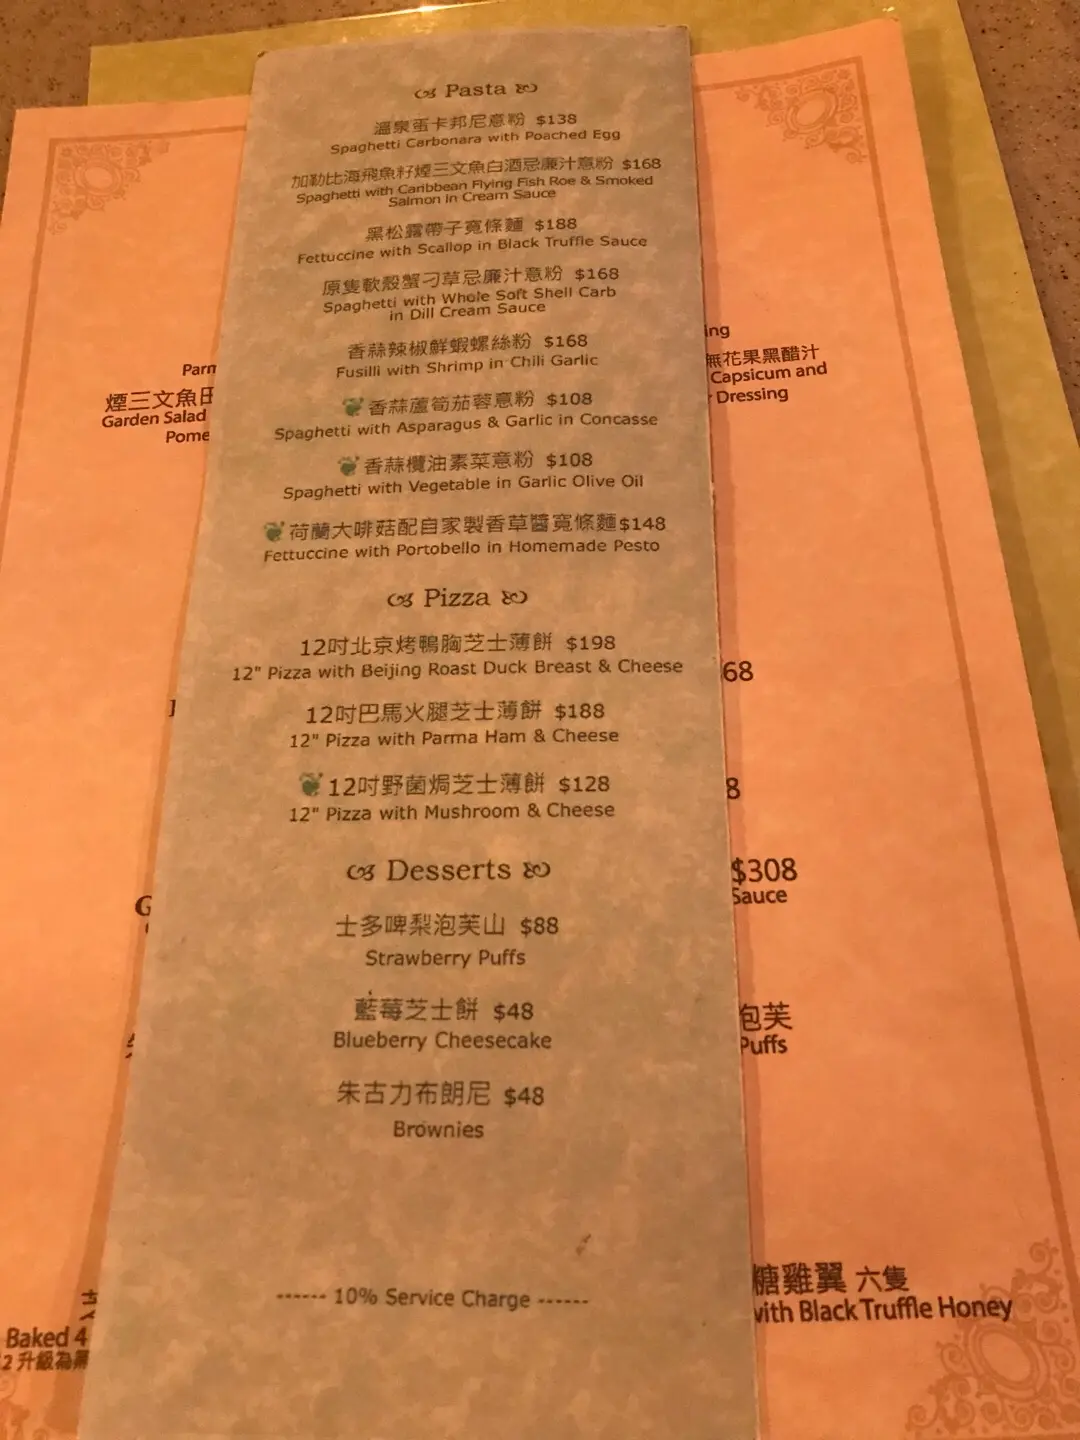 Pasta
溫泉蛋卡邦尼意粉 $138
Spaghetti Carbonara with Poached Egg
加勒比海飛魚籽煙三文魚白酒忌廉汁意粉 $168
Spaghetti with Caribbean Flying Fish Roe & Smoked
Salmon in Cream Sauce
黑松露帶子寬條麵 $188
Fettuccine with Scallop in Black Truffle Sauce
原隻軟殼蟹刁草忌廉汁意粉 $168
Spaghetti with Whole Soft Shell Carb
in Dill Cream Sauce
香蒜辣椒鮮蝦螺絲粉 $168
Fusilli with Shrimp in Chili Garlic
香蒜蘆筍茄蓉意粉 $108
Spaghetti with Asparagus & Garlic in Concasse
香蒜欖油素菜意粉 $108
Spaghetti with Vegetable in Garlic Olive Oil
荷蘭大啡菇配自家製香草醬寬條麵$148
Fettuccine with Portobello in Homemade Pesto
Pizza
12吋北京烤鴨胸芝士薄餅 $198
12" Pizza with Beijing Roast Duck Breast & Cheese
12吋巴馬火腿芝士薄餅 $188
12" Pizza with Parma Ham & Cheese
12吋野菌焗芝士薄餅 $128
12" Pizza with Mushroom & Cheese
Desserts
士多啤梨泡芙山 $88
Strawberry Puffs
藍莓芝士餅 $48
Blueberry Cheesecake
朱古力布朗尼 $48
Brownies
------ 10% Service Charge ------
Parm
煙三文魚田
Garden Salad
Pome
G
Baked 4
2 升級為
ing
無花果黑醋汁
Capsicum and
Dressing
68
8
$308
Sauce
泡芙
Puffs
糖雞翼 六隻
with Black Truffle Honey